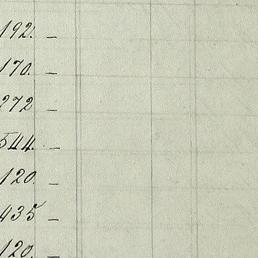 192. –
170. –
272 –
544. –
120. –
435 –
120. –